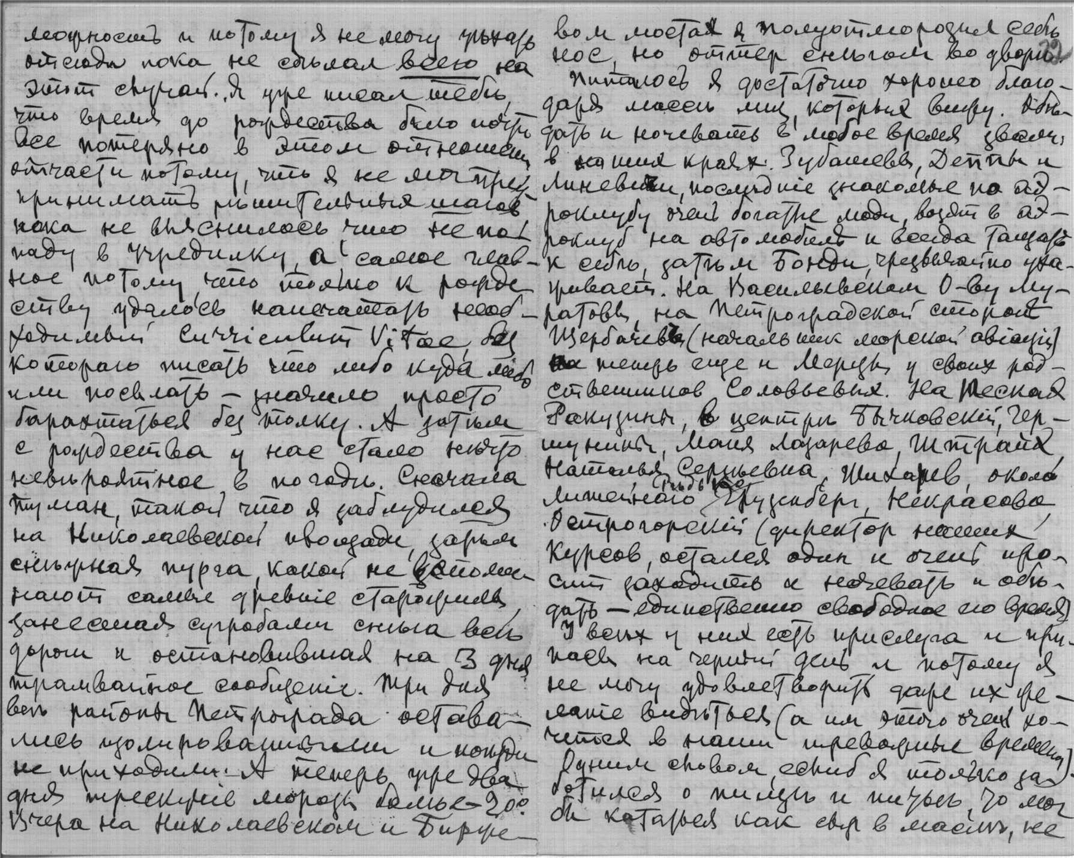 можность и потому я не могу уѣхать
отсюда пока не сдѣлал всего на
этот случай. Я уже писал тебѣ,
что время до рождества было почти
все потеряно в этом отношеніи
отчасти потому, что я не мог пред
принимать рѣшительных шагов
пока не выяснилось что не по
паду в Учредилку, а самое глав-
ное потому что только к рожде
ству удалось напечатать необ-
ходимый Curriculum Vitae, без
котораго писать что либо куда либо
или посылать – значило просто
барахтаться без толку. А затѣм
с рождества у нас стало нѣчто
невѣроятное в погодѣ. Сначала
туман, такой что я заблудился
на Николаевской площади, затѣм
снѣжная пурга, какой не вспоми
нают самые древніе старожилы,
занесшая сугробами снѣга всѣ
дороги и остановившая на 3 дня
трамвайное сообщеніе. Три дня
всѣ районы Петрограда остава-
лись изолированными и поѣзда
не приходили. А теперь, уже два
дня трескучіе морозы болѣе – 20°
Вчера на Николаевском и Бирже-
вом мостах я полуотморозил себѣ
нос, но оттер снѣгом во дворѣ.
Питаюсь я достаточно хорошо благо-
даря массѣ лиц, которых вижу. Обѣ-
дать и ночевать в любое время звали
в наших краях. Зубашевы, Деппы и
Линевичи, послѣдніе знакомые по аэ-
роклубу очень богатые люди, возят в аэ-
роклуб на автомобилѣ и всегда тащат
к себѣ, затѣм Бонди, чрезвычайно уха-
живает. На Васильевском О-ву Му-
ратовы, на Петроградской сторонѣ
Щербачевы (начальник морской авіаціи)
на теперь еще и Мерцы у своих род-
ственников Соловьевых. На Песках
Ракузины, в центрѣ Бычковскій, Гер-
шунины, Маня Лазарева, Штрайх,
Наталья Сергѣевна, Шихарев, около
Литейнаго Грузенберг, Некрасова,
Острогорскій (директор наших
Курсов, остался один и очень про-
сит заходить и ночевать и обѣ-
дать – единственно свободное его время)
У всѣх у них есть прислуга и при-
пасы на черный день и потому я
не могу удовлетворить даже их же-
ланіе видѣться (а им этого очень хо-
чется в наши тревожные времена).
Одним словом, если б я только за-
ботился о пищѣ и питьѣ, то мог
бы кататься как сыр в маслѣ, не